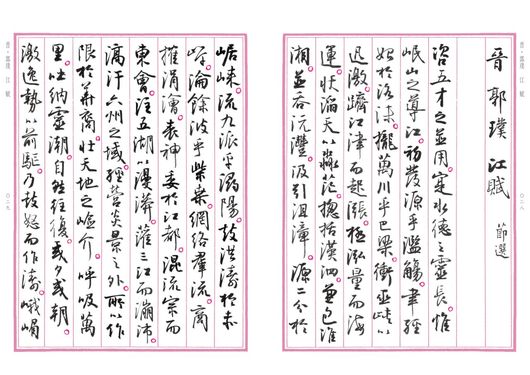 晋·郭璞 江賦
〇二八
晉 郭璞 江賦 節選
咨五才之並用寔水德之靈長惟
岷山之導江初發源乎濫觴聿經
始於洛沬攏萬川乎巴梁衝巫峽以
迅激躋江津而起漲極泓量而海
運狀滔天以淼茫摠括漢泗兼包淮
湘並吞沅澧汲引沮漳源二分於
崌崍流九派乎潯陽鼓洪濤於赤
岸淪餘波乎柴桑網絡群流商
搉涓澮表神委於江都混流宗而
東會注五湖以漫漭灌三江而漰沛
滈汗六州之域經營炎景之外所以作
限於華裔壯天地之嶮介呼吸萬
里吐納靈潮自然往復或夕或朝
激逸勢以前驅乃鼓怒而作濤峨嵋
晋·郭璞 江賦
〇二九